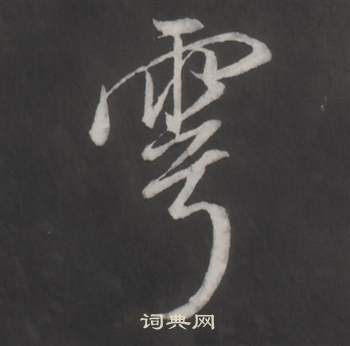 雩
词典网